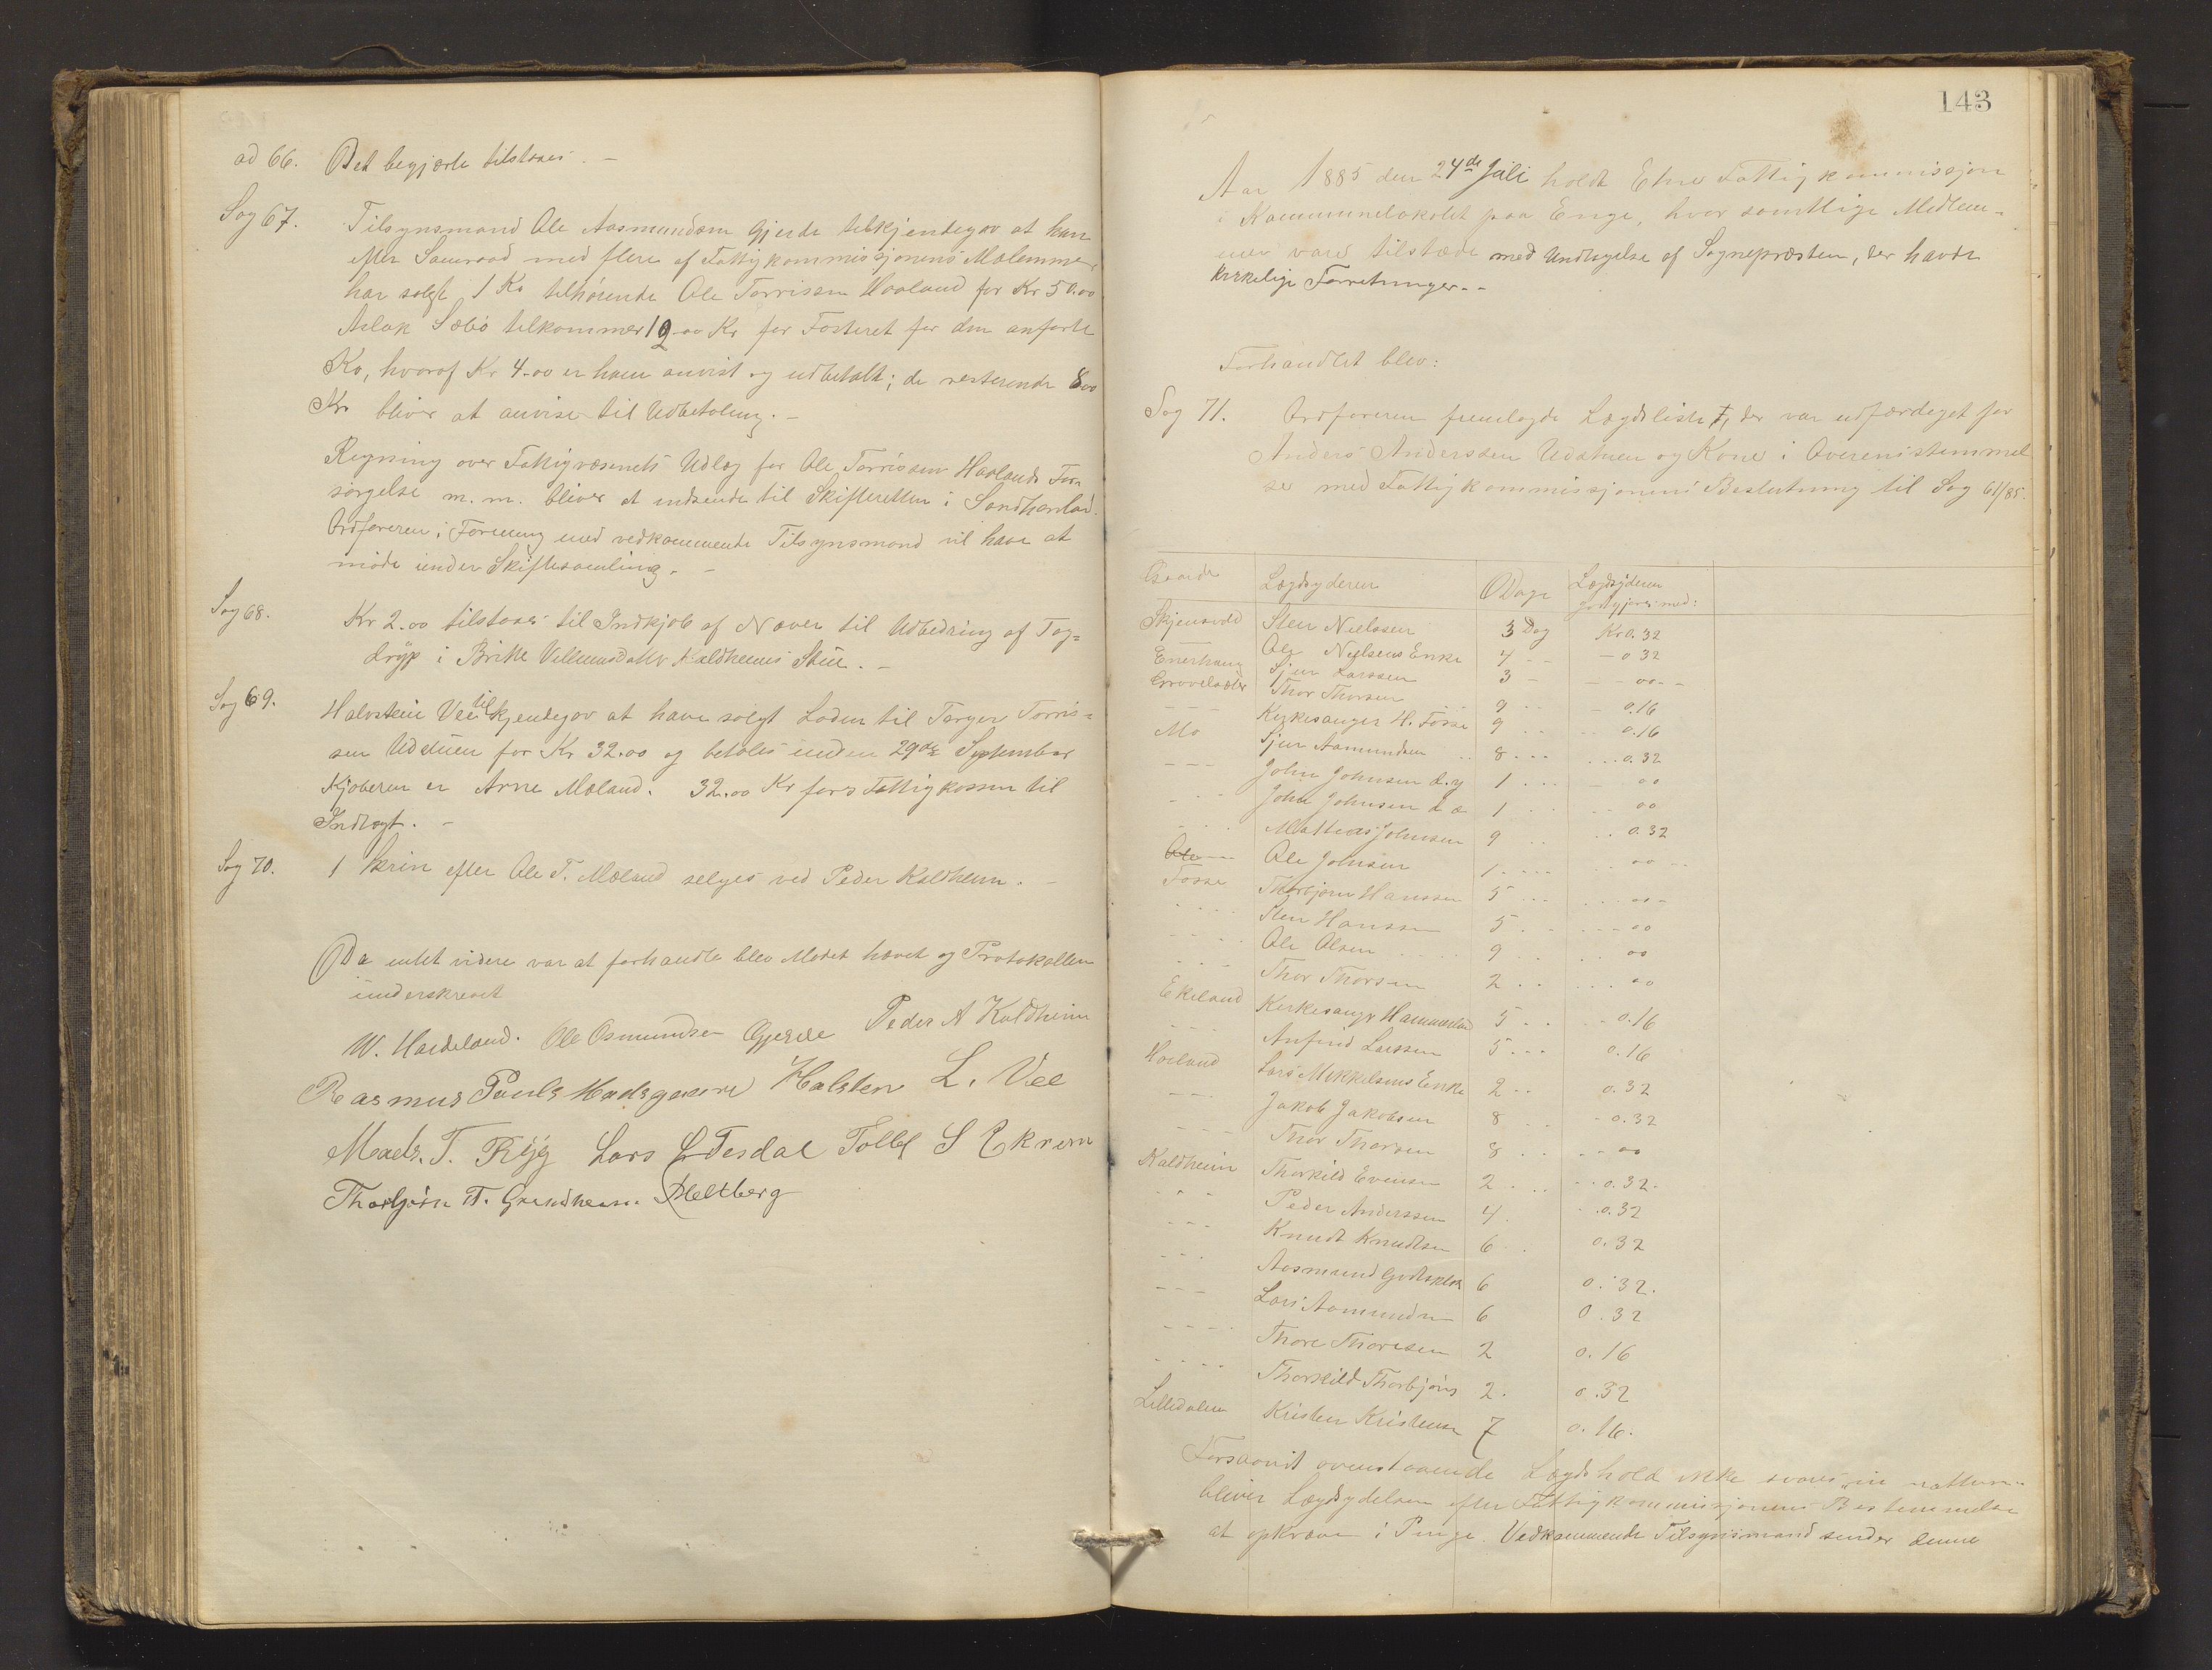 ad 66. Det begjærte tilstaaes. –
Sag 67. Tilsynsmand Ole Aasmundsen Gjerde tilkjendegav at han
efter Samraad med flere af Fattigkommissjonens Mælemmer
har solgt 1 Ko tilhørende Ole Torrissen Haaland for Kr 50.00
Aslak Sæbø tilkommer 12.00 Kr for Fosteret for den anførte
Ko, hvoraf Kr 4.00 er ham anvist og udbetalt; de resterende 8.00
Kr bliver at anvise til Udbetaling. –
Regning over Fattigvæsenets Udlæg for Ole Torrissen Haalands For-
sørgelse m. m. bliver at indsende til Skifteretten i Søndhordland.
Ordføreren i Forening med vedkommende Tilsynsmand vil have at
møde under Skiftesamling. –
Sag 68. Kr 2.00 tilstaaes til Indkjøb af Næver til Udbedring af Tag=
dryp i Brithe Villumsdatter Kaldheims Stue. –
Sag 69. Halvstein Vee tilkjendegav at have solgt Loden til Torger Torris=
sen Udstuen for Kr 32.00 og betales inden 29de September
Kjøberen er Arne Mæland. 32.00 Kr føres Fattigkassen til
Indtægt. –
Sag 70. 1 Skrin efter Ole T. Mæland selges ved Peder Kaldheim. –
Da intet videre var at forhandle blev Mødet hævet og Protokollen
underskrevet
W. Hardeland. Ole Osmundsen Gjerde Peder A Kaldheim
Rasmus Pouls Hadsgaare Halsten L. Vee
Mads. T. Ryg Lars L Tesdal Tollef S Ekrem
Thorbjørn T. Grindheim. P Heltberg
143
Aar 1885 den 24de Juli holdt Etne Fattigkommissjon
i Kommunelokalet paa Enge, hvor samtlige Medlem-
mer vare tilstæde med Undtagelse af Sognepræsten, der havde
kirkelige Forretninger. -
Forhandlet blev:
Sag 71. Ordføreren fremlagde Lægdsliste, der var udfærdiget for
Anders Anderssen Udstuen og Kone i Overenstemmel
se med Fattigkommissjonens Beslutning til Sag 61/85.
Gaarde Lægdsyderen Dage Lægdsyderen godtgjøres med:
Skjensvold Sten Nielssen 3 Dag Kr 0.32
Ole Nielsens Enke 4 - - - 0 32
Enerhaug Sjur Larssen 3 - - - 00 - -
Grovelæter Thor Thorsen 9 - - - 0.16
Mo Kirkesanger H. Fosse 9 - - - 0.16
- - - Sjur Aamundsen 8 - - - 0.32
John Johnsen d.y 1 - - - 00
- - - John Johnsen d æ 1 - - - 00
- - - Mattias Johnsen 9 - - 0.32
Ole Johnsen 1 - - - 00 - -
Fosse Thorbjørn Hanssen 5 - - - 00 -
- - - Sten Hanssen 5 - - - 00
- - - Ole Olsen 9 - - - 00
- - - Thor Thorsen 2 - - - 00
Ekeland Kirkesanger Hammerland 5 - - - 0.16
- - - Anfind Larssen 5 - - - 0.16
Høiland Lars Mikkelsens Enke 2 - - 0.32
- - - Jakob Jakobsen 8 - - - 0.32
- - - Thor Thorsen 8 - - - 00
Kaldheim Thorkild Evensen 2 - - - 0.32 -
- - - Peder Anderssen 4 - - 0.32
- - - Knudt Knudtsen 6 - - 0.32
- - - Aasmund Godtskalk 6 0.32.
- - - Lars Aamundsen 6 0.32
- - - Thore Thoresen 2 0.16
- - - Thorkild Thorbjørns 2. 0.32
Lilledalen Kristen Kristensen 7 0.16.
Forsaavidt ovenstaaende Lægdshold ikke svares in natura
bliver Lægdsydelsen efter Fattigkommissjonens Bestemmelse
at opkræve i Penge. Vedkommende Tilsynsmand sender denne